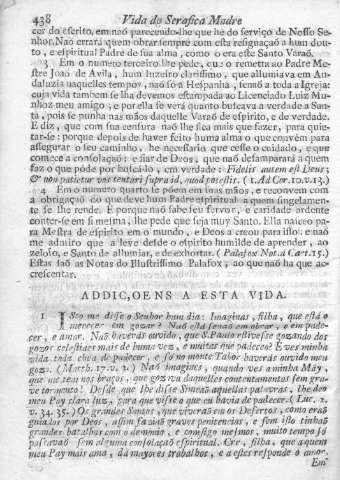 438 Vida da Serafica Madre
cer do eſcrito, em naõ parecendo-lhe que he do ſerviço de Noſſo Se-
nhor. Naõ errará quem obrar ſempre com eſta reſignaçaõ a hum dou-
to, e eſpiritual Padre de ſua alma, como o era eſte Santo Varaõ.
3 Em o numero terceiro lhe pede, que o remetta ao Padre Me-
ſtre Joaõ de Avila, hum luzeiro clariſſimo, que allumiava em An-
daluzia naquelles tempos, naõ ſó a Heſpanha, ſenaõ a toda a Igreja:
cuja vida tambem ſe lha devemos eſtampada ao Licenciado Luiz Mu-
nhoz meu amigo, e por ella ſe verá quanto buſcava a verdade a San-
ta, pois ſe punha nas mãos daquelle Varaõ de eſpirito, e de verdade.
E diz, que com ſua cenſura naõ lhe fica mais que fazer, para quie-
tar-ſe: porque depois de haver feito huma alma o que convém para
aſſegurar o ſeu caminho, he neceſſario que ceſſe o cuidado, e que
comece a conſolaçaõ: e fiar de Deos, que naõ deſamparará a quem
faz o que póde por buſcá-lo, em verdade: Fidelis autem eſt Deus;
& non patietur vos tentari ſupra id, quod poteſtis. (1. Ad Cor. 10. v. 13.)
4 Em o numero quarto ſe põem em ſuas mãos, e reconvem com
a obrigaçaõ do que deve hum Padre eſpiritual a quem ſingelamen-
te ſe lhe rende. E porque naõ ſabe ſeu fervor, e caridade ardente
conter-ſe em ſi meſma, lhe pede que ſeja muy Santo. Ella naſceo pa-
ra Meſtra de eſpirito em o mundo, e Deos a creou para iſſo: e naõ
me admiro que a leve deſde o eſpirito humilde de aprender, ao
zeloſo, e Santo de allumiar, e de exhortar. (Palafox Not. a Cart. 15.)
Eſtas ſaõ as Notas do Illuſtriſſimo Palafox, ao que naõ ha que ac-
creſcentar.
ADDIC,OENS A ESTA VIDA.
1 ISto me diſſe o Senhor hum dia: Imaginas, filha, que eſtá o
merecer em gozar? Naõ eſtá ſenaõ em obrar, e em pade-
cer, e amar. Naõ haverás ouvido, que S. Paulo eſtiveſſe gozando dos
gozos celeſtiaes mais de huma vez, e muitas que padeceo? E ves minha
vida toda chea de padecer, e ſó no monte Tabor haverás ouvido meu
gozo. (Matth. 17. v. 2.) Naõ imagines, quando ves a minha Mãy
que me tem nos braços, que gozava daquelles contentamentos ſem gra-
ve tormento. Deſde que lhe diſſe Simeaõ aquellas palavras, lhe deo
meu Pay clara luz, para que viſſe o que eu havia de padecer. (Luc. 2.
v. 34. 35.) Os grandes Santos, que viveraõ em os Deſertos, como eraõ
guiados por Deos, aſſim faziaõ graves penitencias, e ſem iſſo tinhaõ
grandes batalhas com o demonio, e comſigo meſmos, muito tempo ſe
paſſavaõ ſem alguma conſolaçaõ eſpiritual. Cre, filha, que a quem
meu Pay mais ama, dá mayores trabalhos, e a eſtes reſponde o amor.
Em